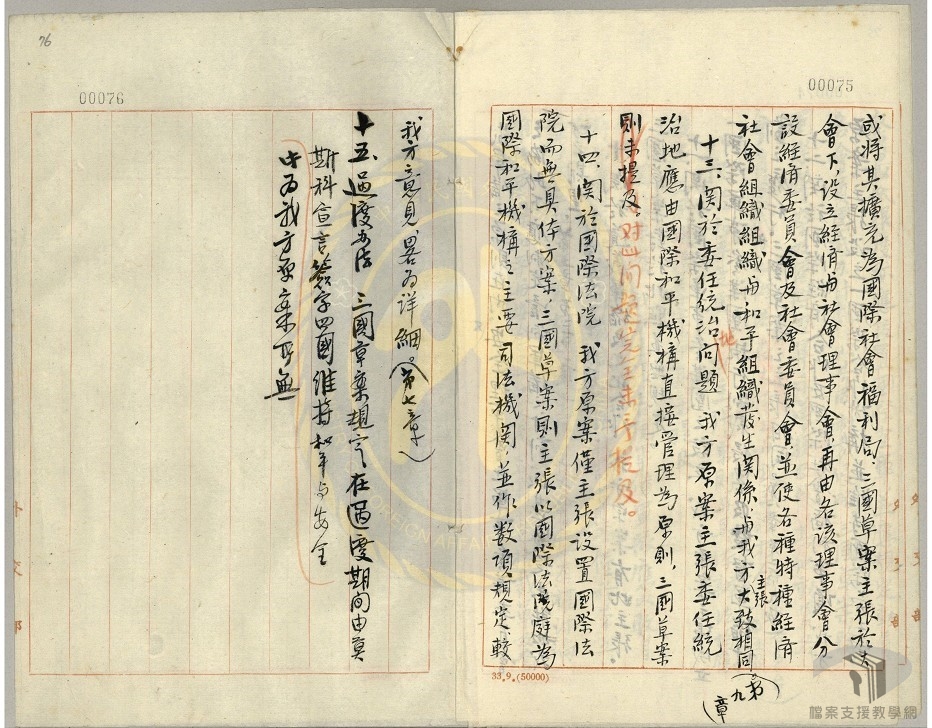 00075
或將其擴充為國際社會福利局、三國草案主張於大
會下、設立經濟与社會理事會、再由各該理事會分
設經濟委員會及社會委員會、並使各種特種經濟
社會組織組織与和平組織發生關係、与我方主張大致相同(第九章)
十三、関於委任統治地問題 我方原案主張委任統
治地應由國際和平機構直接管理為原則、三國草案
則未提及。
十四、関於國際法院 我方原案僅主張設置國際法
院而無具体方案、三國草案則主張以國際法院庭為
國際和平機構之主要司法機関、並作数項規定、較
33.9.(50000)
76
00076
我方意見、畧為詳細。(第七章)
十五、過度办法 三國草案規定在過度期间由莫
斯科宣言簽字四國維持和平与安全
此為我方原案所無
外交部
檔案支援教學網